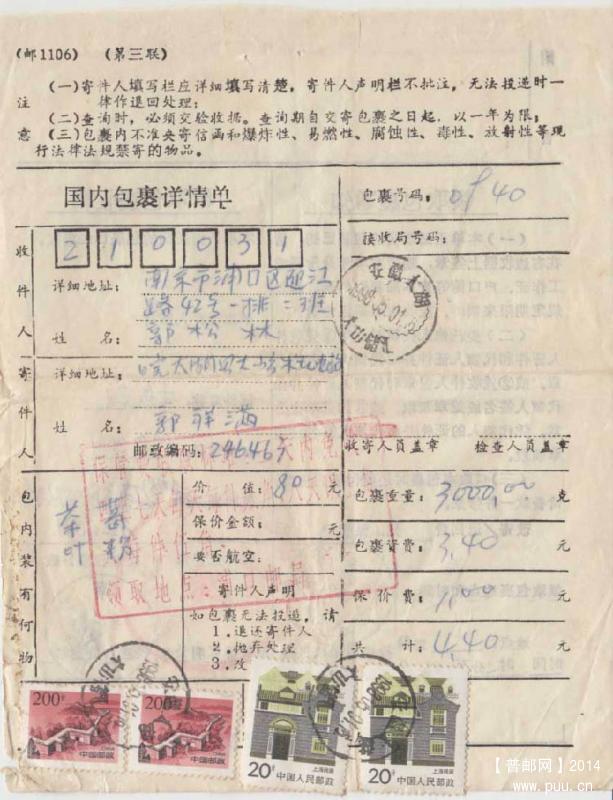 (邮1106) (第三联)
(一)寄件人填写栏应详细填写清楚,寄件人声明栏不批注,无法投递时一
注 律作退回处理;
(二)查询时,必须交验收据。查询期自交寄包裹之日起,以一年为限;
意 (三)包裹内不准夹寄信函和爆炸性、易燃性、腐蚀性、毒性、放射性等现
行法律法规禁寄的物品。
国内包裹详情单
包裹号码:
40
接收局号码:
收件人
210031
详细地址:
南京市浦口区迎江
路42号一排二班
姓 名:
郭松林
寄件人
详细地址:
皖太湖
姓 名:
郭祥满
邮政编码:
24646
安徽太湖
收寄人员盖章
检查人员盖章
包内装有何物
茶叶
价 值: 80 元
保价金额: 元
要否航空:
寄件人声明
如包裹无法投递,请
1.退还寄件人
2.抛弃处理
3.改
包裹重量: 3000.00 克
包裹资费: 3.40 元
保价费: 1.00 元
共 计: 4.40 元
领取地点:
200分
中国邮政
200分
中国邮政
上海民居
20分 中国人民邮政
上海民居
20分 中国人民邮政
【普邮网】2014
www.puu.cn